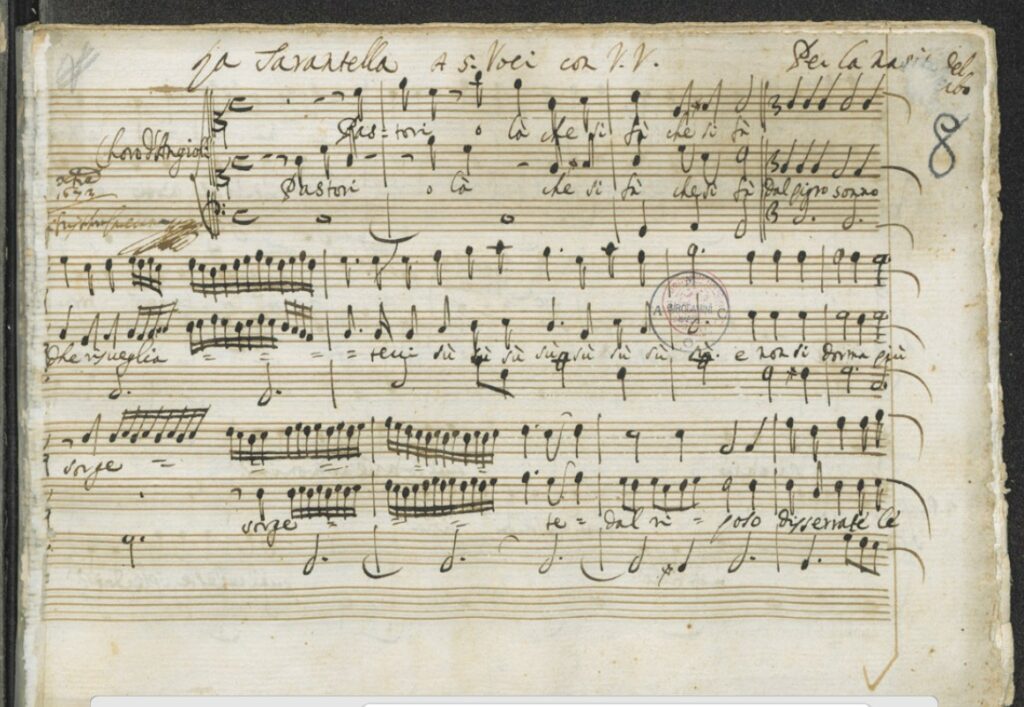 la Tarantella A 5. Voci con V.V. Per la nas del
8
Choro d'Angioli
Pas=tori o là che si fà che si fà
1672
Pastori o là che si fà che si fà dal pigro sonno
che risueglia = = = = teui sù sù sù sù sù sù sù sù. e non si dorma più
sorge =
sorge = = te= dal ri = poso disserrate le